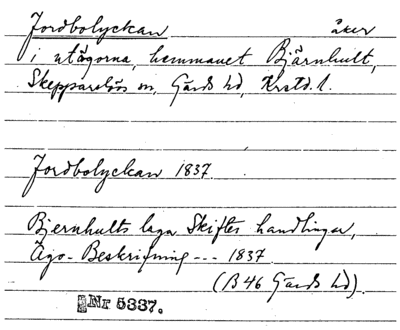 Jordbolyckan åker
i utägorna, hemmanet Bjärnhult,
Skepparslövs sn, Gärds hd, Krstd. l.
Jordbolyckan 1837
Bjernhults laga Skiftes handlingar,
Ägo-Beskrifning --- 1837
(B 46 Gärds hd).
Nr 5337.